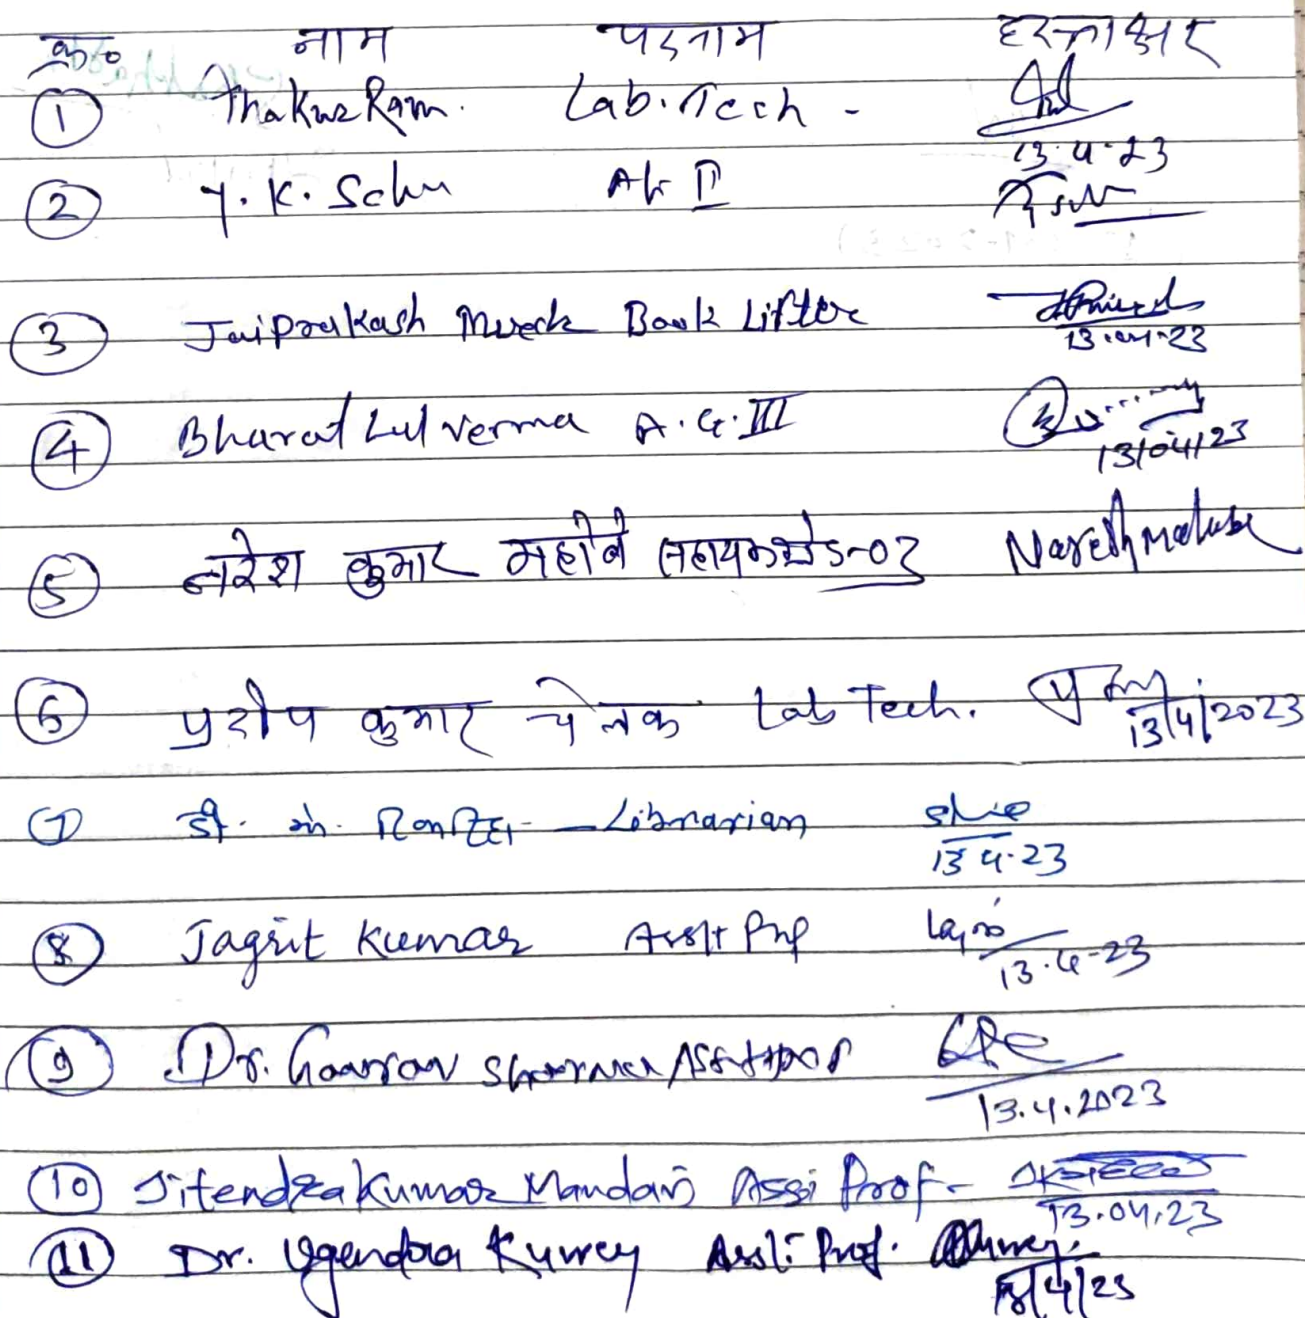 क्र० नाम पदनाम हस्ताक्षर
1 Thakur Ram. Lab. Tech -
13.4.23
2 Y. K. Sahu AG II
3 Jaiprakash Book Lifter
13.04.23
4 Bharat Lal Verma A.G.III
13/04/23
5 नरेश कुमार महोबे सहायक ग्रेड-03 Naresh
6 प्रदीप कुमार चेलक Lab Tech.
13/4/2023
7 डी. के. — Librarian
13.4.23
8 Jagrit Kumar Asstt Prof
13.4-23
9 Dr. Gaurav Sharma Asst Prof
13.4.2023
10 Jitendra Kumar Mandavi Assi Prof-
13.04.23
11 Dr. Ugendra Kurrey Asst. Prof.
13/4/23